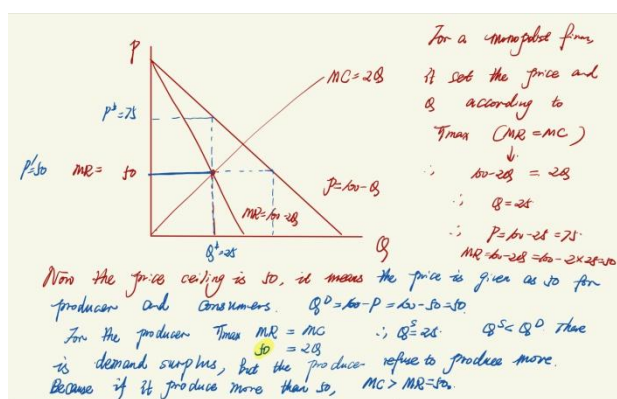 P
MC = 2Q
P* = 75
P' = 50 MR = 50
P = 100 - Q
MR = 100 - 2Q
Q* = 25
Q
For a monopolist firm,
it set the price and
Q according to
πmax (MR = MC)
↓
∴ 100 - 2Q = 2Q
∴ Q = 25
∴ P = 100 - 25 = 75.
MR = 100 - 2Q = 100 - 2×25 = 50
Now the price ceiling is 50, it means the price is given as 50 for
producer and consumers. Q^D = 100 - P = 100 - 50 = 50.
For the producer πmax MR = MC ∴ Q^S = 25. Q^S < Q^D There
50 = 2Q
is demand surplus, but the producer refuse to produce more.
Because if it produce more than 50, MC > MR = 50.